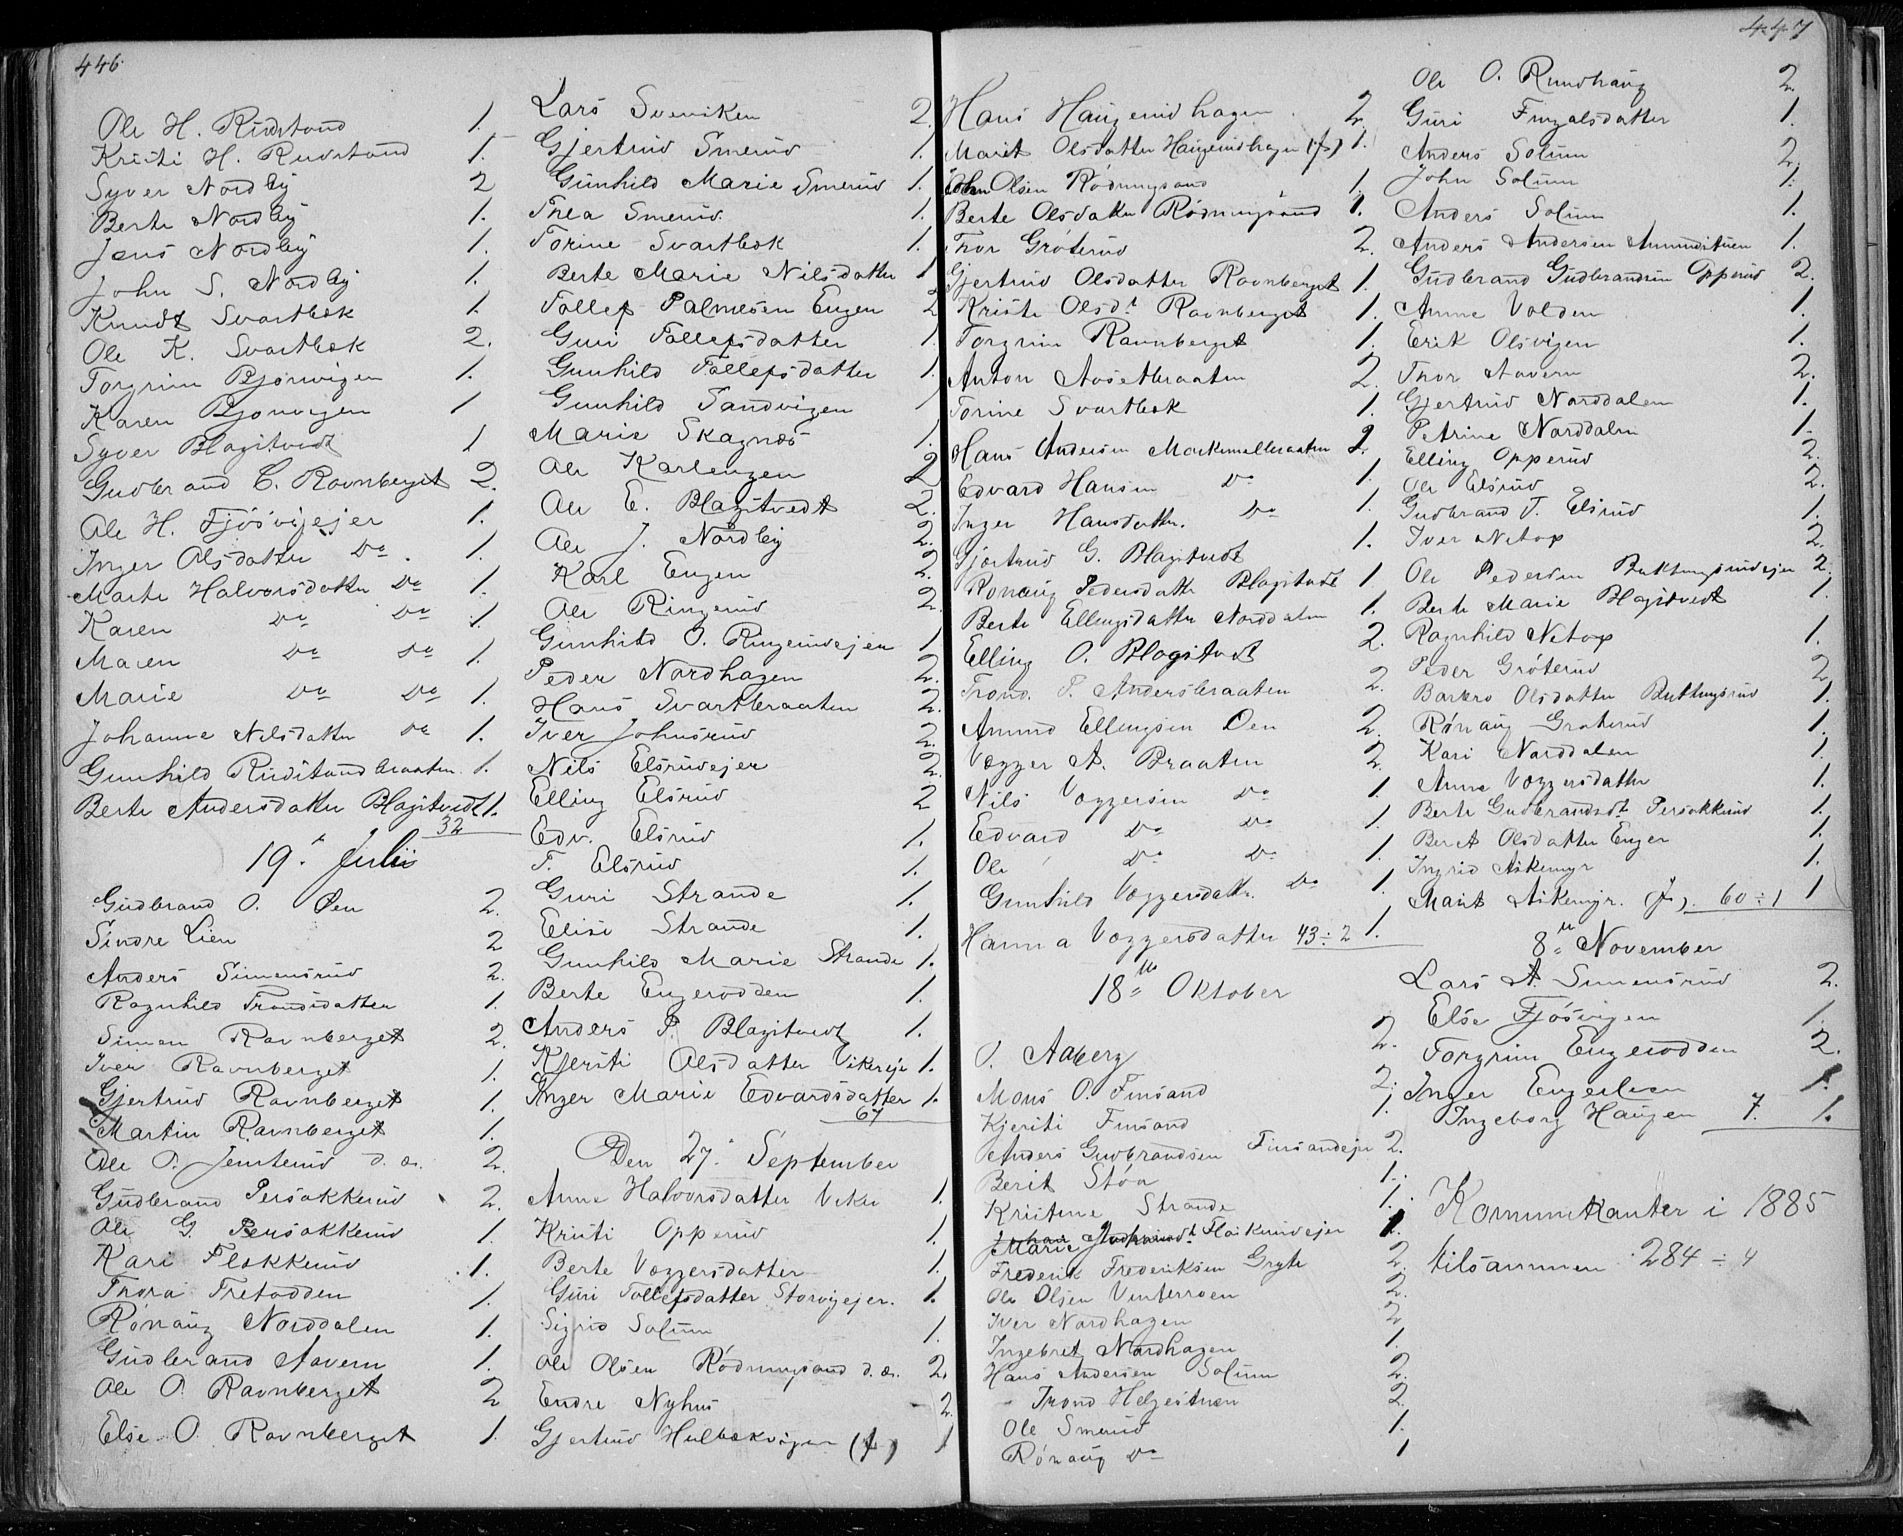 446
Ole H. Rudstand 1.
Kristi H. Rudstand 1.
Syver Nordby 2
Berte Nordby 1.
Jens Nordby 1.
John S. Nordby 1.
Knudt Svartbæk 1.
Ole K. Svartbæk 2.
Torgrim Bjørnvigen 1.
Karen Bjørnvigen 1
Syver Blagstvedt 1
Gudbrand C. Ravnberget 2.
Ole H. Fjøsvigejer 1.
Inger Olsdatter Do. 1.
Marte Halvorsdatter Do 1.
Karen Do Do 1.
Maren Do Do 1.
Marie Do Do 1.
Johanne Nilsdatter Do 1.
Gunhild Rudstandbraaten 1.
Berte Andersdatter Blagstvedt 1.
32
19. Juli
Gudbrand O. Øen 2.
Sindre Lien 2
Anders Simensrud 2.
Ragnhild Trondsdatter 1.
Simen Ravnberget 2.
Iver Ravnberget 1.
Gjertrud Ravnberget 1.
Martin Ravnberget 1.
Ole P. Jensterud d. æ. 2.
Gudbrand Persokkerud 2.
Ole G. Persokkerud 1.
Kari Flakkerud 1.
Thora Tretodden 1.
Rønaug Norddalen 1.
Gudbrand Aavern 1.
Ole O. Ravnberget 2
Else O. Ravnberget 1.
Lars Sveniken 2.
Gjertrud Smerud 1.
Gunhild Marie Smerud 1.
Thea Smerud 1.
Torine Svartbæk 1.
Berte Marie Nilsdatter 1
Tollef Palmesen Engen 2
Guri Tollefsdatter 1
Gunhild Tollefsdatter 1.
Gunhild Sandvigen 1
Marie Skagnæs 1.
Ole Karlengen 2
Ole E. Blagstvedt 2.
Ole J. Nordby 2.
Karl Engen 2.
Ole Ringerud 2.
Gunhild O. Ringerudejer 1
Peder Nordhagen 2.
Hans Svartbraaten 2.
Iver Johnsrud 2.
Nils Elsrudejer 2.
Elling Elsrud 2
Edv. Elsrud 1.
T. Elsrud 1.
Guri Strande 1.
Elise Strande 1.
Gunhild Marie Strande 1.
Berte Engerodden 1.
Anders P. Blagstvedt 1.
Kjersti Olsdatter Vikereje 1.
Inger Marie Edvardsdatter 1.
67
Den 27. September
Anne Halvorsdatter Viker 1.
Kristi Opperud 1.
Berte Væggersdatter 1.
Guri Tollefsdatter Storvigejer. 1.
Sigrid Solum 1.
Ole Olsen Rødningsand d. æ. 2.
Endre Nyhus 2.
Gjertrud Hulbækvigen (f) 1
447
Hans Haugerudhagen 2.
Marit Olsdatter Haugerudhagen (f) 1.
Olsen Rødningsand 1.
Berte Olsdatter Rødningsand 1.
Thor Grøterud 2.
Gjertrud Olsdatter Ravnberget 1.
Kristi Olsdt Ravnberget 1.
Torgrim Ravnberget 1.
Anton Aasetbraaten 2.
Torine Svartbæk 1.
Hans Andersen Morkmelbraaten 2.
Edvard Hansen Do 1.
Inger Hansdatter. Do 1.
Gjertrud G. Blagstvedt 1.
Rønaug Pedersdatter Blagstvedt 1
Berte Ellingsdatter Norddalen 1.
Elling O. Blagstvedt 2.
Trond P. Andersbraaten 2.
Amund Ellingsen Øen 2.
Vægger A. Braaten 2.
Nils Væggersen Do 1.
Edvard Do Do 1.
Ole Do Do 1.
Gunhild Væggersdatter Do 1.
Hanna Væggersdatter 43÷2 1.
18de Oktober
O. Aaberg 2.
Mons O. Finsand 2.
Kjersti Finsand 1.
Anders Gudbrandsen Finsandeje 2.
Berit Støa 1.
Kristine Strande 1.
Marie Flaskerudejer 1.
Frederik Frederiksen Gryte 2.
Ole Olsen Vinterroen 2.
Iver Nordhagen 2
Ingebret Nordhagen 1.
Hans Andersen Solum 2.
Trond Helgestuen 2.
Ole Smerud 1.
Rønaug Do 1
Ole O. Rundhaug 2.
Guri Finzalsdatter 1.
Anders Solum 2.
John Solum 1.
Anders Solum 1.
Anders Andersen Amundstuen 1.
Gudbrand Gudbrandsen Opperud 2.
Anne Volden 1.
Erik Olsvigen 1.
Thor Aavern 2.
Gjertrud Norddalen 1.
Petrine Norddalen 1.
Elling Opperud 2.
Ole Elsrud 2.
Gudbrand T. Elsrud 1.
Iver Netop 2.
Ole Pedersen Buttingsrudejer 2.
Berte Marie Blagstvedt 1.
Ragnhild Netop 1.
Peder Grøterud 2
Barbro Olsdatter Buttingsrud 1.
Rønaug Grøterud 1.
Kari Norddalen 1.
Anne Væggersdatter 1.
Berte Gudbrandsdt Persokkerud 1.
Berit Olsdatter Enger 1.
Ingrid Askemyr 1.
Marit Askemyr. (f). 60÷1 1
8de November
Lars A. Simensrud 2.
Else Fjøsvigen 1.
Torgrim Engerodden 2.
Inger Engerlien 1.
Ingeborg Haugen 7. 1.
Kommunikanter i 1885
tilsammen 284 ÷ 4